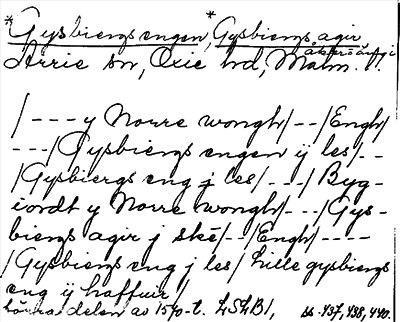 *Gysbiergs engen, *Gysbiergs agir
Arrie sn, Oxie hd, Malm.
/ - - - y Norre wongh/ - - /Engh/
- - -/ Gysbiergs engen ij les/ - -
/Gysbiergs eng j les/ - - -/ Byg-
iordt y Norre wongh/ - - -/ Gys-
biergs agir j ske/ - - /Engh/ - - - -
/Gysbiergs eng j les/ Lille gysbiergs
eng ij haffuir/
delen av 1570-t. LSLB1, ss. 437, 438, 440.